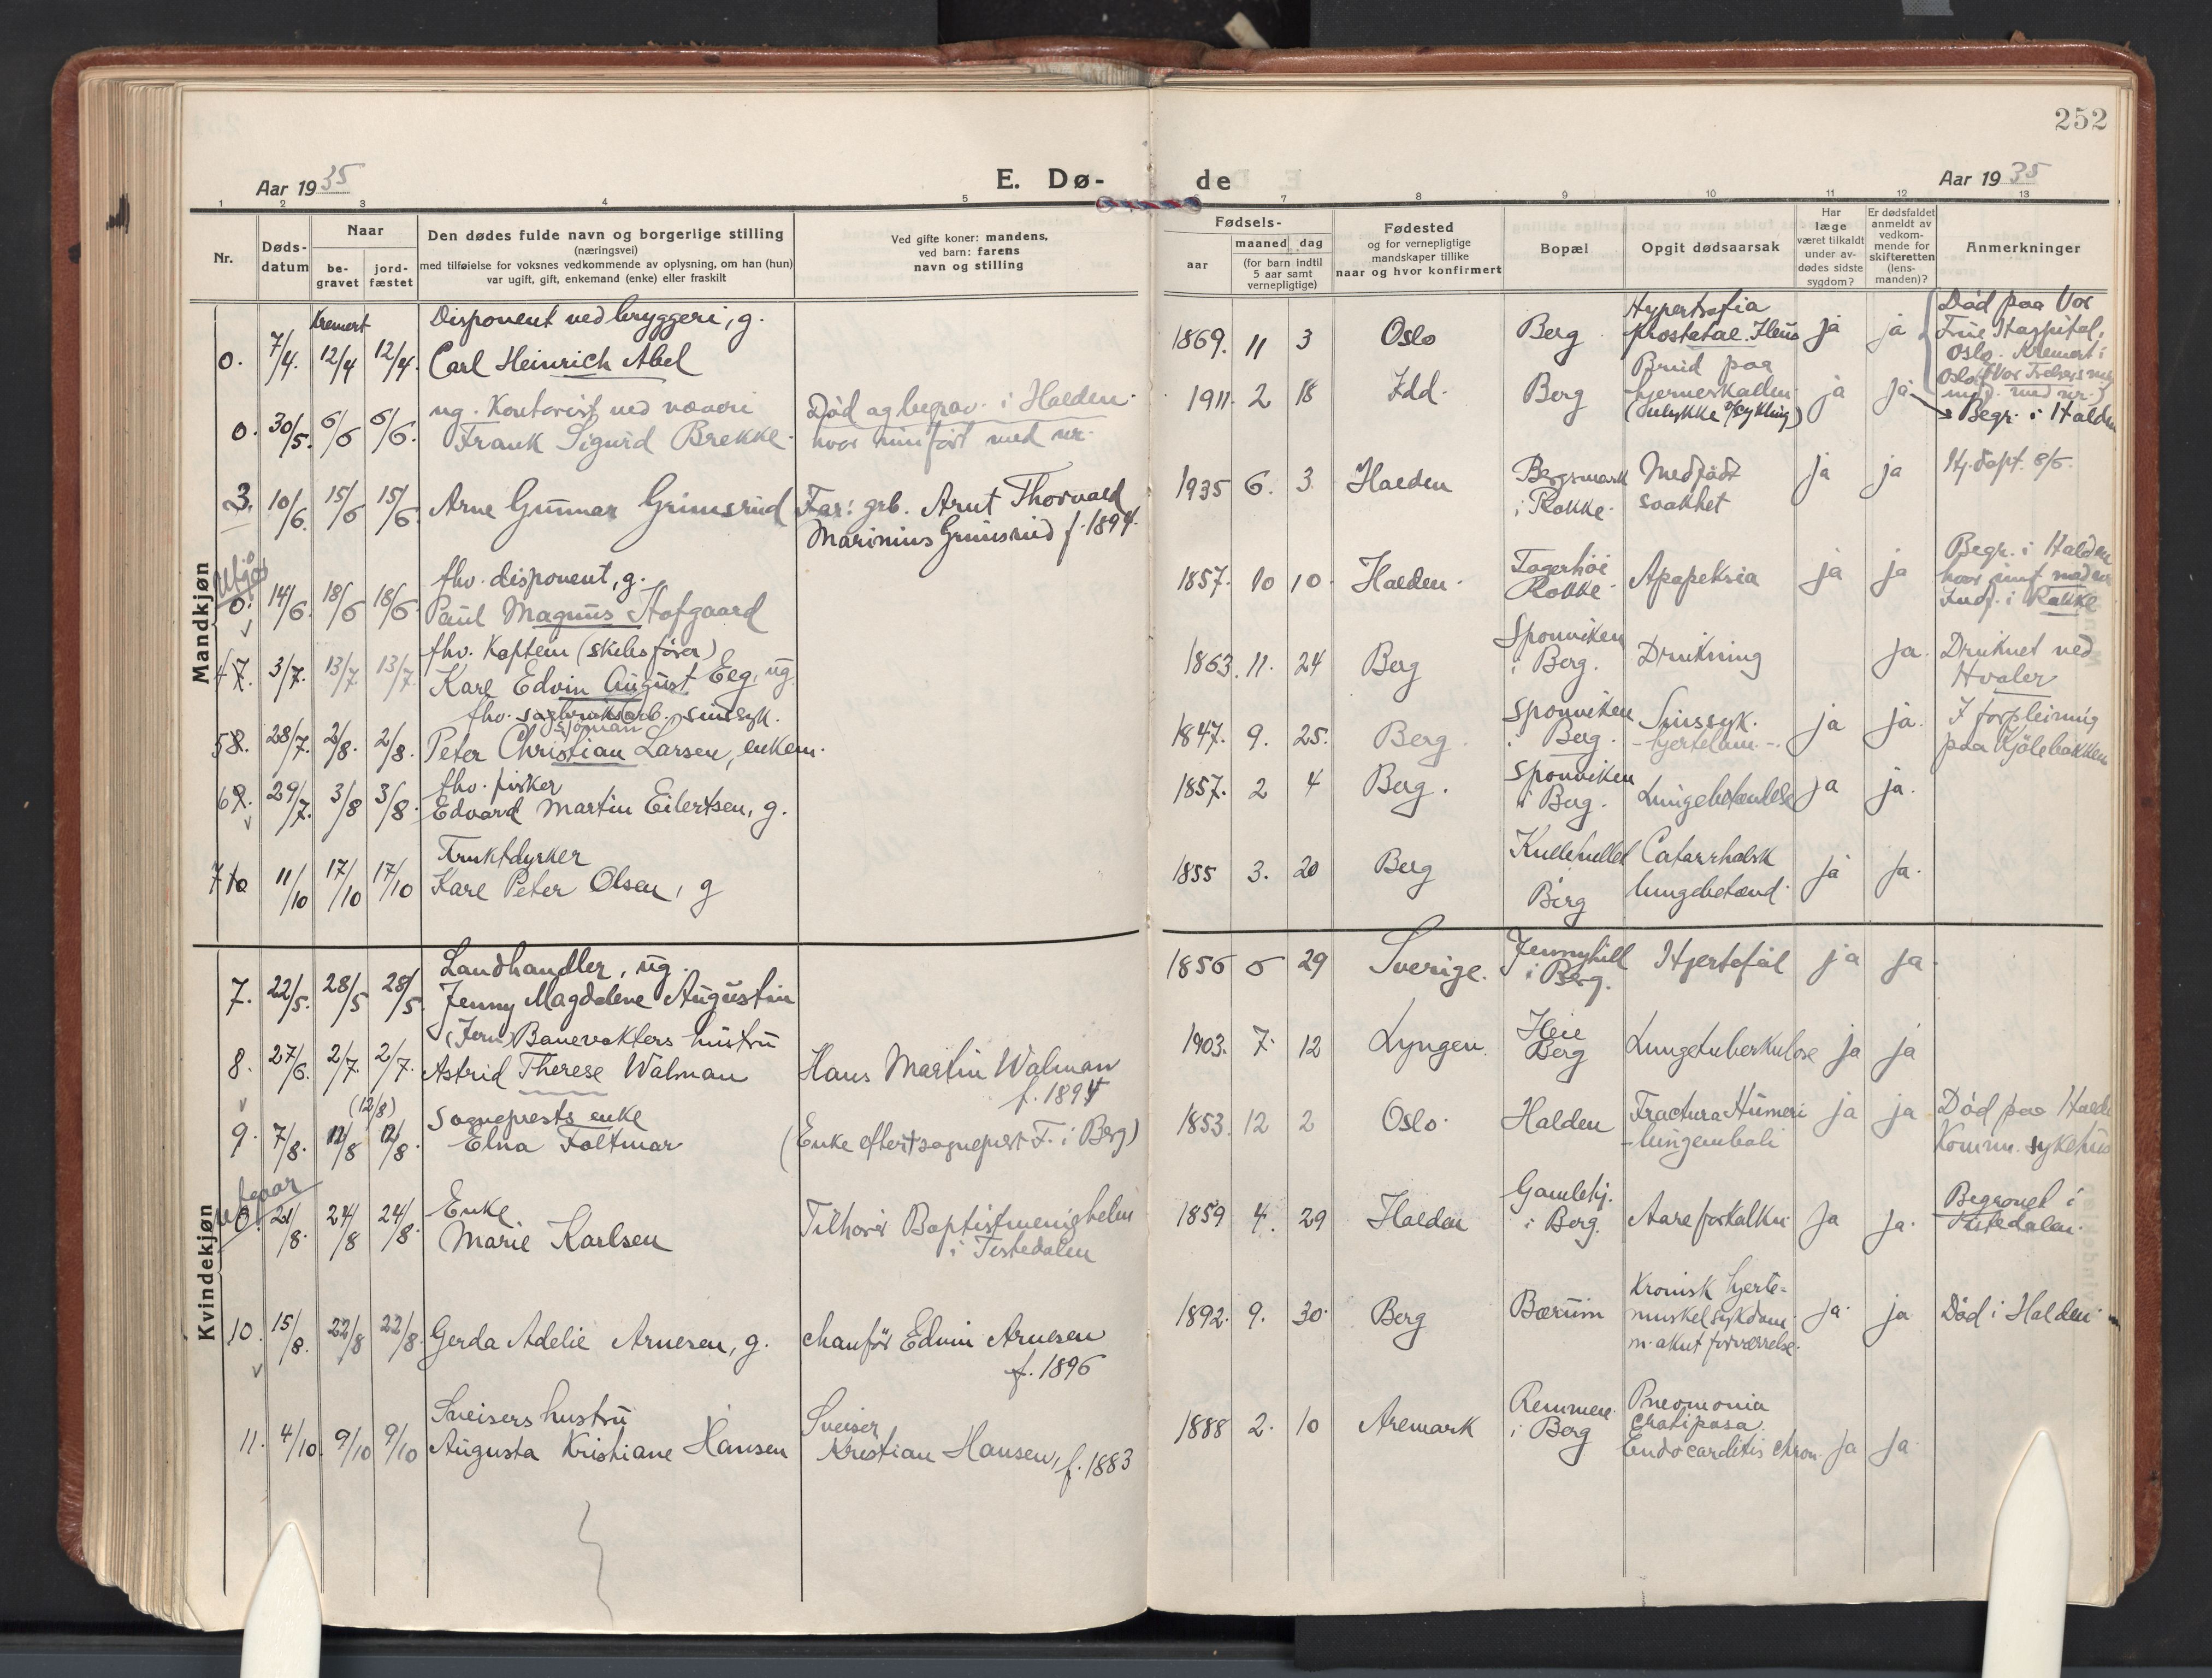 252
Aar 1935
E. Dø-
de
Aar 1935
1 2 3 4 5 6 7 8 9 10 11 12 13
Nr.
Døds-
datum
Naar
be-
gravet
jord-
fæstet
Den dødes fulde navn og borgerlige stilling
(næringsvei)
med tilføielse for voksnes vedkommende av oplysning, om han (hun)
var ugift, gift, enkemand (enke) eller fraskilt
Ved gifte koner: mandens,
ved barn: farens
navn og stilling
Fødsels-
aar
maaned dag
(for barn indtil
5 aar samt
vernepligtige)
Fødested
og for vernepligtige
mandskaper tillike
naar og hvor konfirmert
Bopæl
Opgit dødsaarsak
Har
læge
været tilkaldt
under av-
dødes sidste
sygdom?
Er dødsfaldet
anmeldt av
vedkom-
mende for
skifteretten
(lens-
manden)?
Anmerkninger
Mandkjøn
0. 7/4. Kremert 12/4 12/4.
Disponent ved bryggeri, g.
Carl Heinrich Abel
1869. 11 3 Oslo Berg
Hypertrofia
prostatae. Ileus
ja ja
Død paa Vor
Frue Hospital,
Oslo. Kremert i
Oslo
0. 30/5. 6/6 6/6.
ug. Kontorist ved væveri
Frank Sigurd Brekke.
Død og begrav. i Halden
hvor innført med nr.
1911. 2 18 Idd. Berg
Brud paa
hjerneskallen
(Ulykke v/sykling)
ja ja
Begr. i Halden
3. 10/6. 15/6 15/6.
Arne Gunnar Grimsrud
Far: grb. Arnt Thorvald
Marinius Grimsrud f. 1894.
1935 6. 3 Halden
Bergsmark
i Rokke.
Medfødt
svakhet
ja ja
Hj.døpt. 8/6.
0. 14/6. 18/6 18/6.
fhv. disponent, g.
Paul Magnus Hofgaard
1857. 10 10. Halden.
Rokke.
Apopeksia
ja ja
Begr. i Halden
hvor innf. med nr
Indf. i Rokke
4 7. 3/7. 13/7 13/7.
fhv. Kaptein (skibsfører)
Karl Edvin August Eeg, ug.
1863. 11. 24 Berg
Sponviken
i Berg.
Drukning
ja.
Druknet ved
Hvaler
5 8. 28/7. 2/8. 2/8.
fhv. sagbruksarb. sinssyk.
sjømann
Peter Christian Larsen, enkem.
1847. 9. 25. Berg.
Sponviken
i Berg.
Sinssyk.
- hjertelam. -
ja ja.
I forpleining
paa Kjølebakken
6 9. 29/7. 3/8 3/8.
fhv. fisker
Edvard Martin Eilertsen, g.
1857. 2 4 Berg.
Sponviken
i Berg.
Lungebetændelse
ja ja.
7 10 11/10 17/10 17/10
Fruktdyrker
Karl Peter Olsen, g
1855 3. 20 Berg
Berg
Catarrhalsk
lungebetænd.
ja ja.
Kvindekjøn
7. 22/5. 28/5 28/5.
Landhandler, ug.
Jenny Magdalene Augustin
1856 5 29 Sverige.
Jennyhill
i Berg.
Hjertefeil
ja ja.
8. 27/6. 2/7. 2/7.
(Jern) Banevokters hustru
Astrid Therese Walman
Hans Martin Walman
f. 1894
1903. 7. 12 Lyngen.
Heie
Berg
Lungetuberkulose
ja ja
9. 7/8. 12/8 (12/8) 12/8.
Sogneprests enke
Elna Foltmar
(Enke efter sogneprest F. i Berg)
1853. 12 2 Oslo. Halden
Fractura Humeri
- lungemboli
ja ja
Død paa Halden
Komm. sykehus
0. 21/8. 24/8 24/8.
Enke
Marie Karlsen
Tilhører Baptistmenigheten
i Tistedalen
1859 4. 29 Halden
Gamlehj.
i Berg.
Aareforkalkn.
ja ja.
Begravet i
Tistedalen.
10. 15/8. 22/8 22/8.
Gerda Adelie Arnesen, g.
chauffør Edvin Arnesen
f. 1896
1892. 9. 30. Berg Bærum
Kronisk hjerte-
muskelsykdom
m. akut forværrelse.
ja. ja
Død i Halden
11. 4/10. 9/10 9/10
Sveisers hustru
Augusta Kristiane Hansen
Sveiser
Kristian Hansen, f. 1883
1888 2. 10 Aremark
Remmen
i Berg
Pneomonia
Endocarditis chron.
ja ja